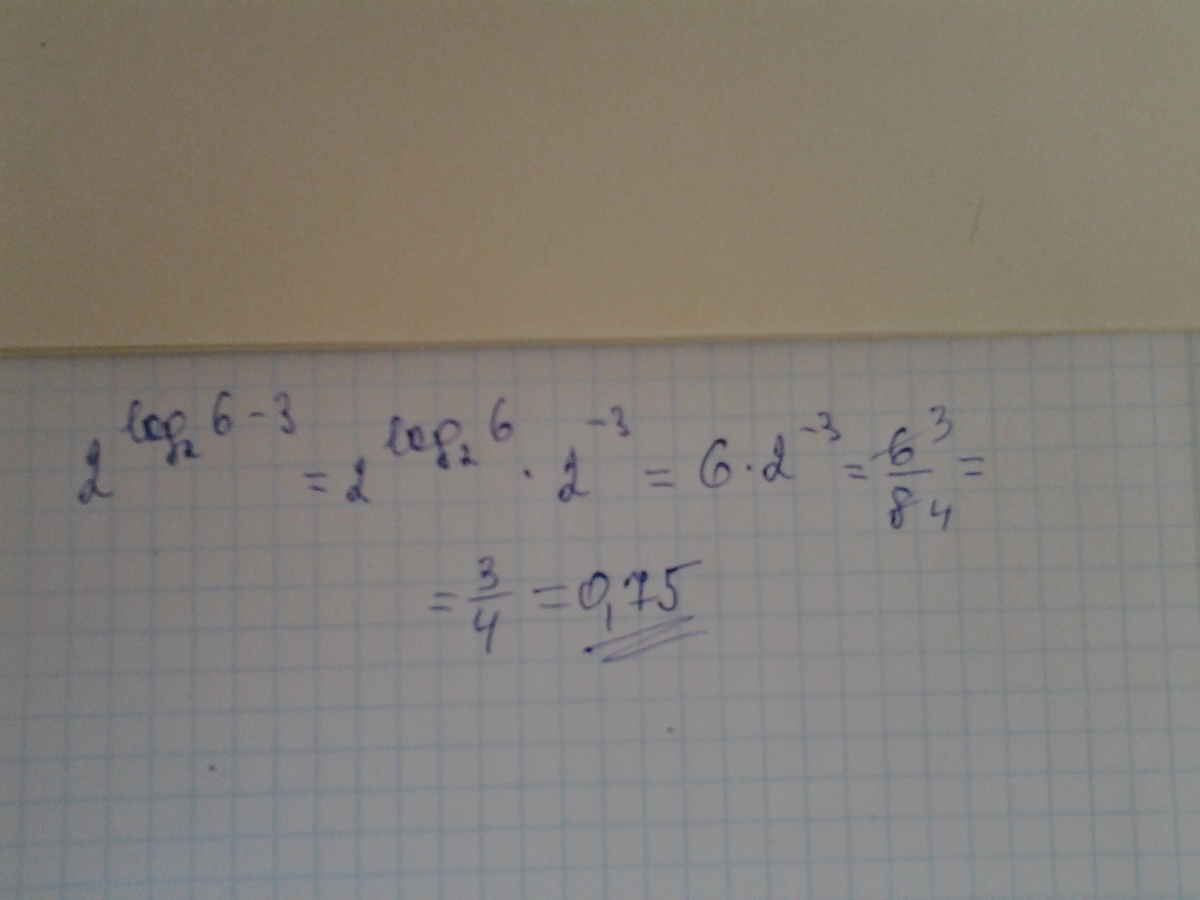 2^{log₂ 6 - 3} = 2^{log₂ 6} · 2^{-3} = 6 · 2^{-3} = \frac{6}{8} ^3 _4 =
= \frac{3}{4} = 0,75